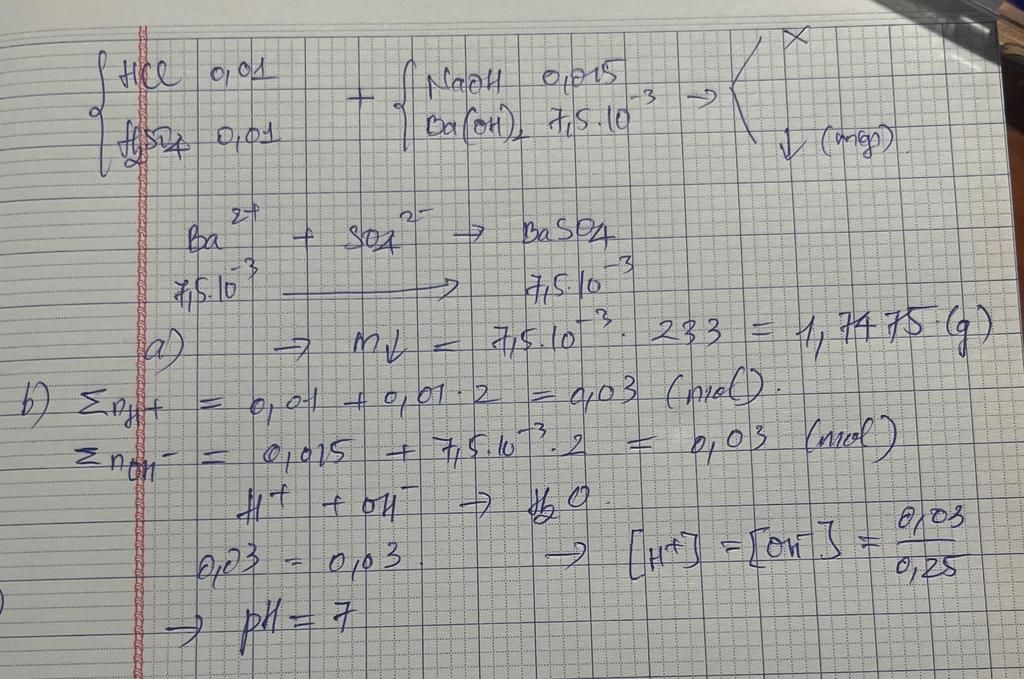 { HCl 0,01 + { NaOH 0,015 → < X
H₂SO₄ 0,01 Ba(OH)₂ 7,5.10⁻³ ↓ (mg)
Ba²⁺ + SO₄²⁻ → BaSO₄
7,5.10⁻³ ⟶ 7,5.10⁻³
a) → m↓ = 7,5.10⁻³. 233 = 1,7475 (g)
b) Σn_H⁺ = 0,01 + 0,01.2 = 0,03 (mol).
Σn_OH⁻ = 0,015 + 7,5.10⁻³.2 = 0,03 (mol)
H⁺ + OH⁻ → H₂O.
0,03 = 0,03. → [H⁺] = [OH⁻] = 0,03/0,25
→ pH = 7